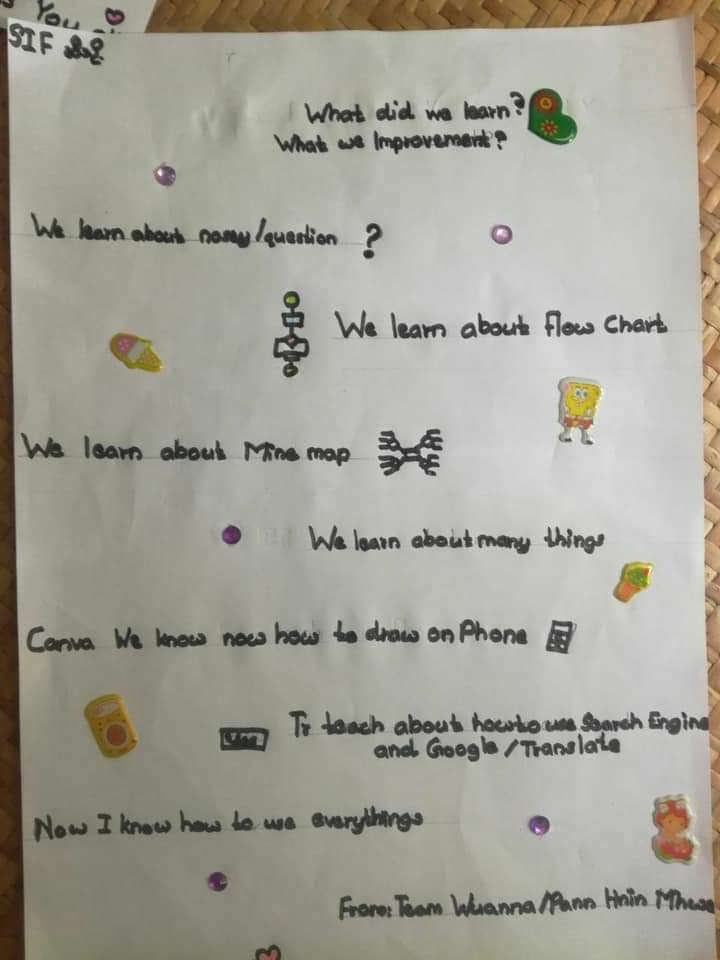 You
SIF
What did we learn?
What we Improvement?
We learn about nosey/question ?
We learn about Flow Chart
We learn about Mine map
We learn about many things
Canva We know now how to draw on Phone
Tr teach about how to use Search Engine
and Google/Translate
Now I know how to use everythings
From: Team Wuanna/Pann Hnin Mhwe